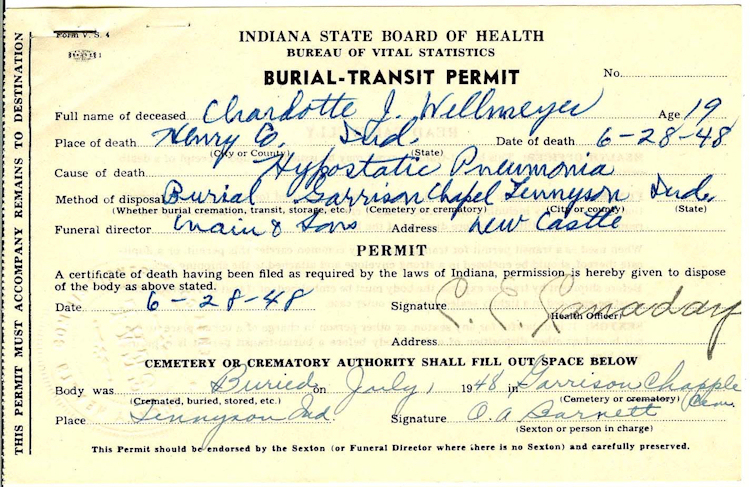 THIS PERMIT MUST ACCOMPANY REMAINS TO DESTINATION
Form V. S. 4
INDIANA STATE BOARD OF HEALTH
BUREAU OF VITAL STATISTICS
BURIAL-TRANSIT PERMIT
No.
Full name of deceased Chardotte J. Wellmeyer Age 19
Place of death Henry Co. Ind. Date of death 6-28-48
(City or County) (State)
Cause of death Hypostatic Pneumonia
Method of disposal Burial Garrison Chapel Tennyson Ind.
(Whether burial cremation, transit, storage, etc.) (Cemetery or crematory) (City or county) (State)
Funeral director & Sons Address New Castle
PERMIT
A certificate of death having been filed as required by the laws of Indiana, permission is hereby given to dispose
of the body as above stated.
Date 6-28-48 Signature
Health Officer
Address
CEMETERY OR CREMATORY AUTHORITY SHALL FILL OUT SPACE BELOW
Body was Buried on July 1 1948 in Garrison Chapple Cem.
(Cremated, buried, stored, etc.) (Cemetery or crematory)
Place Tennyson Ind. Signature O. A. Barnett
(Sexton or person in charge)
This Permit should be endorsed by the Sexton (or Funeral Director where there is no Sexton) and carefully preserved.